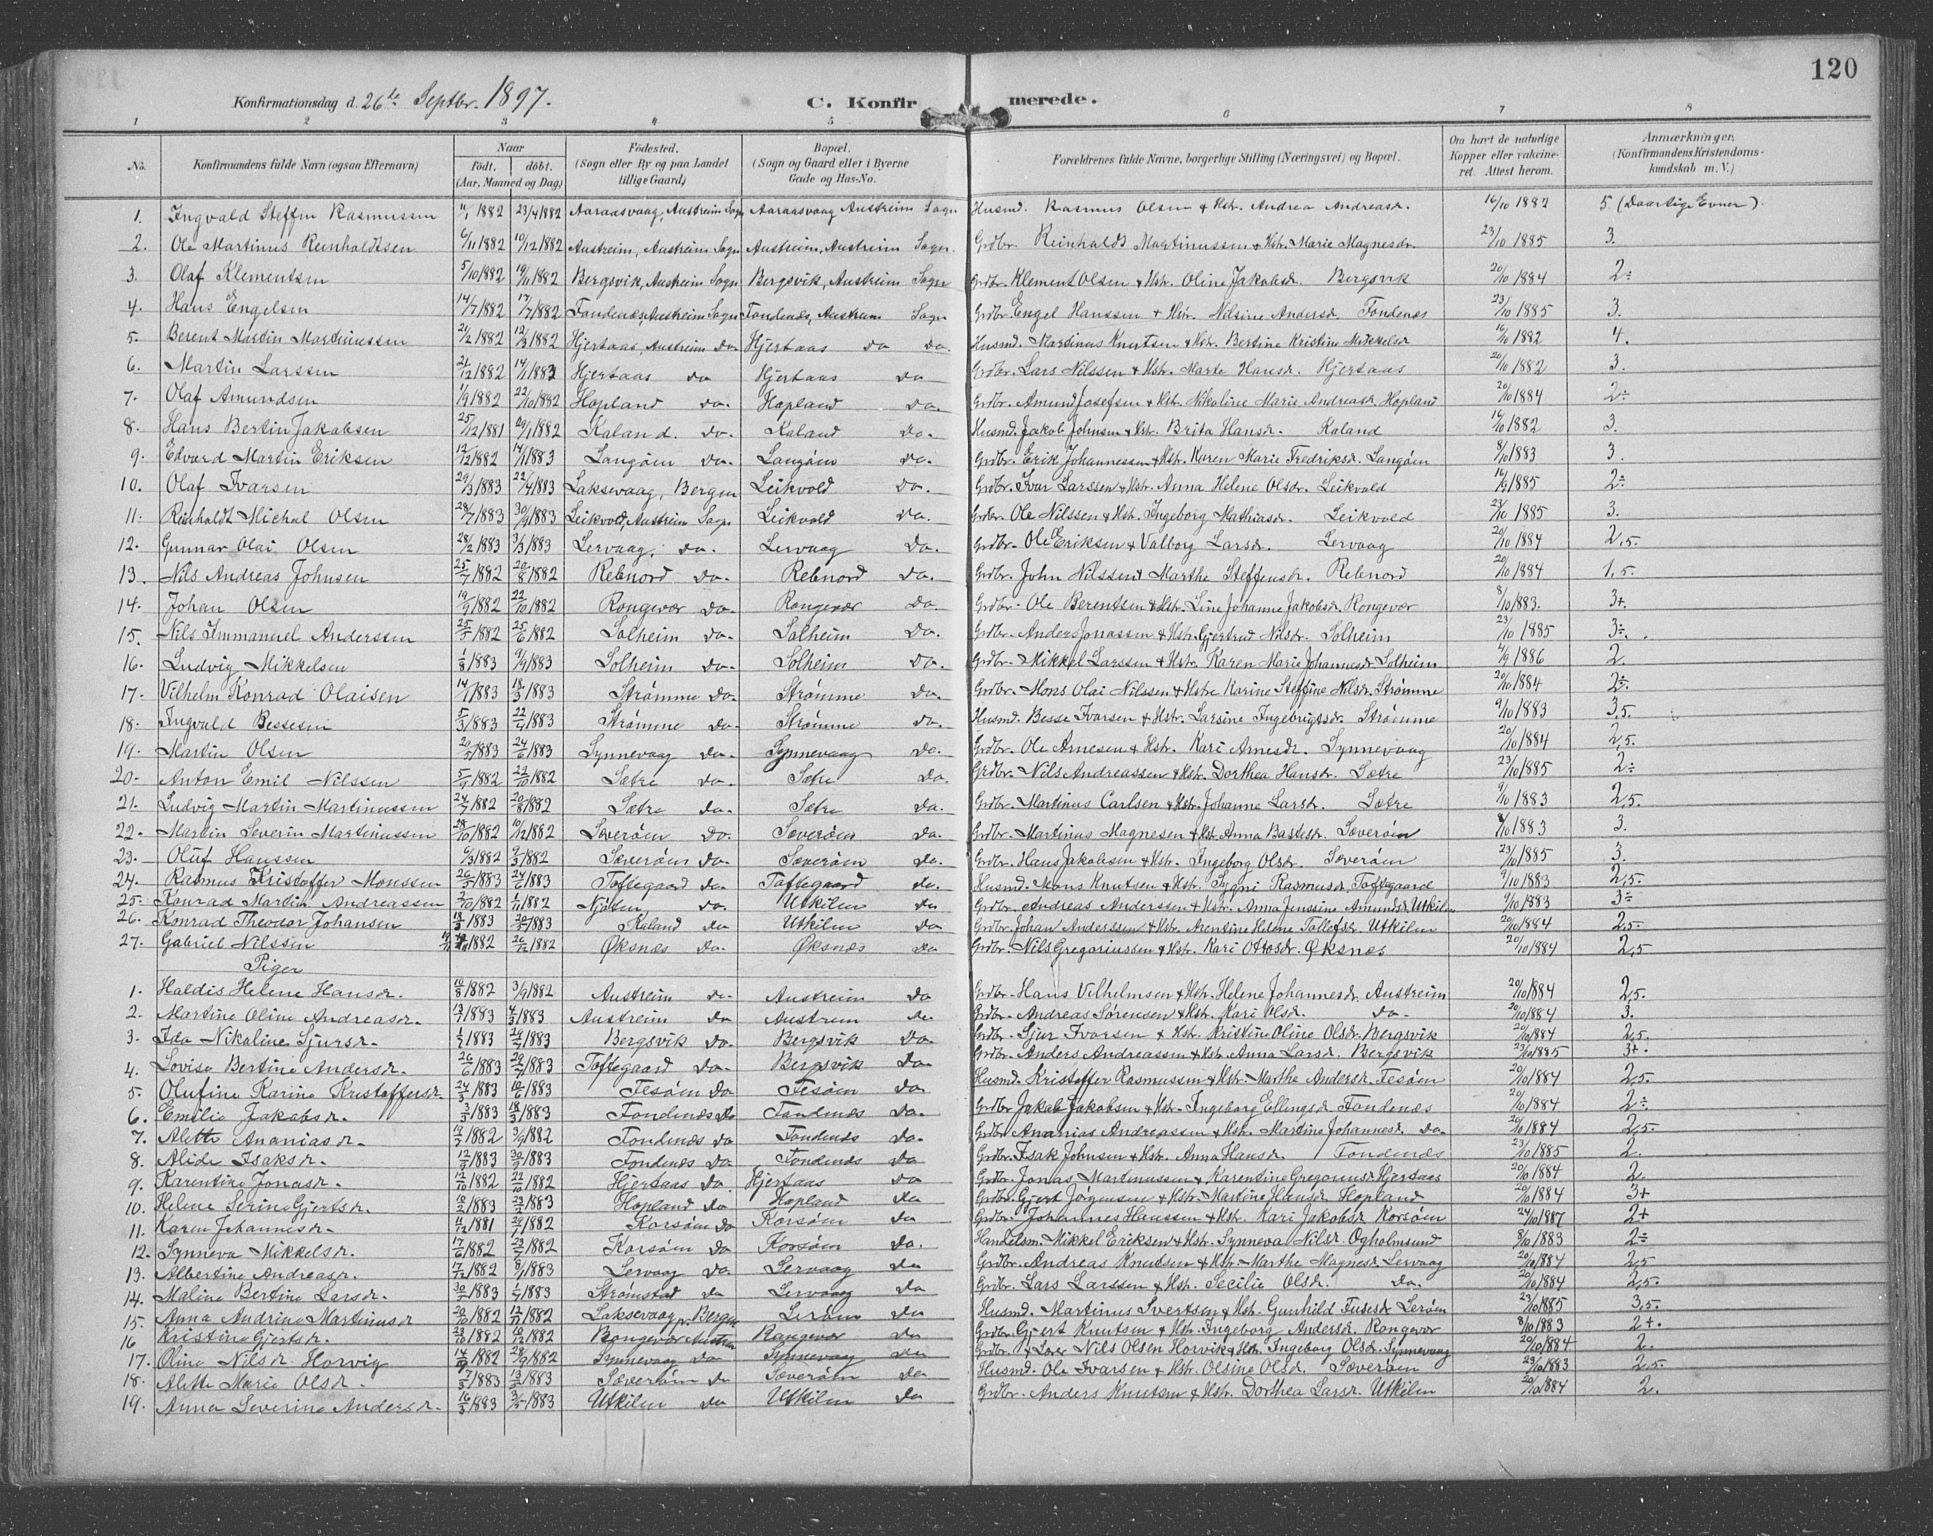 120
Konfirmationsdag d. 26de Septbr. 1897. C. Konfirmerede.
1 2 3 4 5 6 7 8
No. Konfirmandens fulde Navn (ogsaa Efternavn) Naar Født. døbt. (Aar, Maaned og Dag) Fødested. (Sogn eller By og paa Landet tillige Gaard) Bopæl. (Sogn og Gaard eller i Byerne Gade og Hus-No.) Forældrenes fulde Navne, borgerlige Stilling (Næringsvei) og Bopæl. Om havt de naturlige Kopper eller vakcineret. Attest herom. Anmærkninger. (Konfirmandens Kristendomskundskab m. V.)
1. Ingvald Steffen Rasmussen 11/1 1882 23/4 1882 Aaraasvaag, Austreim Sogn Aaraasvaag Austreim Sogn Husmd. Rasmus Olsen & Hstr. Andrea Andreasdr. 16/10 1882 5 (Daarlige Evner).
2. Ole Martinus Reinholdtsen 6/11 1882 10/12 1882 Austreim, Austreim Sogn Austreim, Austreim Sogn. Grdbr. Reinholdt Martinussen & Hstr. Marie Magnesdr. 23/10 1885 3.
3. Olaf Klementsen 5/10 1882 19/11 1882 Bergsvik, Austreim Sogn Bergsvik, Austreim Sogn Grdbr. Klement Olsen & Hstr. Oline Jakobsdr. Bergsvik 20/10 1884 2÷
4. Hans Engelsen 14/7 1882 17/7 1882 Fondenæs, Austreim Sogn Fondenæs, Austreim Sogn Grdbr. Engel Hanssen & Hstr. Nilsine Andersdr. Fondenæs 23/10 1885 3.
5. Berent Martin Martinussen 21/2 1882 12/3 1882 Hjertaas, Austreim do Hjertaas do do. Husmd. Martinus Knutsen & Hstr. Bertine Kristine Mikkelsdr 16/10 1882 4.
6. Martin Larssen 21/12 1882 14/1 1883 Hjertaas do Hjertaas do Grdbr. Lars Nilssen & Hstr. Marte Hansdr. Hjertaas 20/10 1882 3.
7. Olaf Amundsen 1/9 1882 22/10 1882 Hopland do. Hopland do. Grdbr. Amund Josefsen & Hstr. Nikoline Marie Andreasdr Hopland 20/10 1884 2÷
8. Hans Bertin Jakobsen 25/12 1881 29/1 1882 Kaland. do. Kaland do. Husmd. Jakob Johnsen & Hstr. Brita Hansdr. Kaland 16/10 1882 3.
9. Edvard Martin Eriksen 12/12 1882 14/1 1883 Langøen do. Langøen do. Grdbr. Erik Johannessen & Hstr. Karen Marie Fredriksdr. Langøen 8/10 1883 3.
10. Olaf Ivarsen 29/3 1883 22/4 1883 Laksevaag, Bergen Leikvold do. Grdbr. Ivar Larssen & Hstr. Anna Helene Olsdr. Leikvold 16/9 1885 2÷
11. Reinholdt Michal Olsen 28/7 1883 30/9 1883 Leikvold, Austreim Sogn Leikvold do. Grdbr. Ole Nilssen & Hstr. Ingeborg Mathiasdr. Leikvold 23/10 1885 3.
12. Gunnar Olai Olsen 28/2 1883 3/3 1883 Lervaag, do. Lervaag do. Grdbr. Ole Eriksen & Valborg Larsdr. Lervaag 20/10 1884 2,5.
13. Nils Andreas Johnsen 25/7 1882 20/8 1882 Rebnord do. Rebnord do. Grdbr. John Nilssen & Marthe Steffensdr. Rebnord 20/10 1884 1,5.
14. Johan Olsen 19/9 1882 22/10 1882 Rongevær do. Rongevær do Grdbr. Ole Berentsen & Hstr. Line Johanne Jakobsdr. Rongevær 8/10 1883. 3+
15. Nils Immanuel Anderssen 25/5 1882 25/6 1882 Solheim do. Solheim do. Grdbr. Anders Jonassen & Hstr. Gjertrud Nilsdr. Solheim 23/10 1885 3÷
16. Ludvig Mikkelsen 1/8 1883 9/9 1883 Solheim do. Solheim do. Grdbr. Mikkel Larssen & Hstr. Karen Marie Johannesdr. Solheim 4/9 1886 2.
17. Vilhelm Konrad Olaisen 14/1 1883 18/3 1883 Strømme do. Strømme do. Grdbr. Mons Olai Nilssen & Hstr. Karine Steffine Nilsdr. Strømme 20/10 1884 2÷
18. Ingvald Bessesen 5/3 1883 22/4 1883 Strømme do. Strømme do. Husmd. Besse Ivarsen & Hstr. Larsine Ingebrigtsdr. Strømme 9/10 1883 3,5.
19. Martin Olsen 20/5 1883 24/6 1883 Synnevaag do. Synnevaag do. Grdbr. Ole Arnesen & Hstr. Kari Arnesdr. Synnevaag 20/10 1884 2,5.
20. Anton Emil Nilssen 5/9 1882 22/10 1882 Sætre do. Sætre do. Grdbr. Nils Andreassen & Hstr. Dorthea Hansdr. Sætre 23/10 1885 2÷
21. Ludvig Martin Martinussen 24/7 1882 20/8 1882 Sætre do. Sætre do. Grdbr. Martinus Carlsen & Hstr. Johanne Larsdr. Sætre 9/10 1883 2,5.
22. Martin Severin Martinussen 28/10 1882 10/12 1882 Sæverøen do. Sæverøen do. Grdbr. Martinus Magnesen & Hstr. Anna Bastesdr. Sæverøen 8/10 1883 3.
23. Oluf Hanssen 6/3 1882 9/3 1882 Sæverøen do. Sæverøen do. Grdbr. Hans Jakobsen & Hstr. Ingeborg Olsdr. Sæverøen 23/10 1885 3.
24. Rasmus Kristoffer Monssen 26/5 1883 24/6 1883 Toftegaard do. Toftegaard do. Husmd. Mons Knutsen & Hstr. Sygni Rasmusdr. Toftegaard 9/10 1883 2,5.
25. Konrad Martin Andreassen 2/10 1882 1/11 1882 Njøten do. Utkilen do Grdbr. Andreas Anderssen & Hstr. Anna Jenssine Amundsdr. Utkilen 9/10 1883 3÷
26. Konrad Theodor Johansen 18/3 1883 20/5 1883 Kaland do Utkilen do Grdbr. Johan Anderssen & Hstr. Arentine Helene Tollefsdr. Utkilen 20/10 1884 2,5.
27. Gabriel Nilssen 1882 26/12 1882 Øksnæs do. Øksnæs do Grdbr. Nils Gregoriussen & Hstr. Kari Ottosdr. Øksnæs 20/10 1884 2,5.
Piger
1. Haldis Helene Hansdr. 16/8 1882 3/9 1882 Austreim do. Austreim do Grdbr. Hans Vilhelmsen & Hstr. Helene Johannesdr. Austreim 20/10 1884 2,5.
2. Martine Oline Andreasdr. 13/1 1883 4/3 1883 Austreim do Austreim do Grdbr. Andreas Sørensen & Hstr. Kari Olsdr. do. 20/10 1884 3.
3. Ida Nikoline Sjursdr. 1/2 1883 29/4 1883 Bergsvik do. Bergsvik do Grdbr. Sjur Ivarsen & Hstr. Kristine Oline Olsdr. Bergsvik 20/10 1884 2,5.
4. Lovise Bertine Andersdr. 26/6 1883 29/7 1883 Toftegaard do. Bergsvik do Grdbr. Anders Andreassen & Hstr. Anna Larsdr. Bergsvik 23/10 1885 3+.
5. Olufine Karine Kristoffersdr. 24/5 1883 10/6 1883 Fesøen do Fesøen do Husmd. Kristoffer Rasmussen & Hstr. Marthe Andersdr. Fesøen 20/10 1884 2,5.
6. Emilie Jakobsdr. 3/3 1883 18/3 1883 Fondenæs do Fondenæs do. Grdbr. Jakob Jakobsen & Hstr. Ingeborg Ellingsdr. Fondenæs 20/10 1884 2÷
7. Alette Ananiasdr. 14/7 1882 3/9 1882 Fondenæs do Fondenæs do Grdbr. Ananias Andreassen & Hstr. Martine Johannesdr. do. 20/10 1884 2,5.
8. Alide Isaksdr. 12/9 1883 30/9 1883 Fondenæs do Fondenæs do Grdbr. Isak Johnsen & Hstr. Anna Hansdr Fondenæs 23/10 1885 2.
9. Karentine Jonasdr. 12/10 1882 22/10 1882 Hjertaas do Hjertaas do Grdbr. Jonas Martinussen & Karentine Gregoriusdr Hjertaas 20/10 1884 2.
10. Helene Serine Gjertsdr. 10/2 1883 23/3 1883 Hopland do Hopland do Grdbr. Gjert Jørgensen & Hstr. Martine Jensdr. Hopland 20/10 1884 3+
11. Karen Johannesdr. 11/12 1881 22/1 1882 Korsøen do Korsøen do Grdbr. Johannes Hanssen & Hstr. Kari Jakobsdr Korsøen 24/10 1887 2+
12. Synneva Mikkelsdr. 17/6 1882 23/7 1882 Korsøen do Korsøen do. Handelsm. Mikkel Eriksen & Hstr. Synneva Nilsdr. Ogholmsund 8/10 1883 2÷
13. Albertine Andreasdr. 17/12 1882 8/1 1883 Lervaag do Lervaag do Grdbr. Andreas Knutsen & Hstr. Marthe Magnesdr. Lervaag 20/10 1884 2,5.
14. Maline Bertine Larsdr. 30/5 1883 1/7 1883 Strømstad do Lervaag do Grdbr. Lars Larssen & Hstr. Secilie Olsdr. do. 20/10 1884 2,5.
15. Anna Andrine Martinusdr 20/10 1882 12/11 1882 Laksevaag pr. Bergen Lerøen do Husmd. Martinus Ivertsen & Hstr. Gunhild Fusesdr. Lerøen 23/10 1885 3,5.
16 Kristine Gjertsdr. 23/10 1882 10/12 1882 Rongevær Rongevær do Grdbr. Gjert Knutsen & Hstr. Ingeborg Andersdr. Rongevær 8/10 1883 2+.
17. Oline Nilsdr. Horvig 14/9 1882 28/9 1882 Synnevaag do Synnevaag do Grdbr. & Lærer Nils Olsen Horvik & Hstr. Ingeborg Olsdr. Synnevaag 20/10 1884 2.
18. Alette Marie Olsdr. 7/5 1883 13/5 1883 Sæverøen do Sæverøen do Husmd. Ole Ivarsen & Hstr. Olsine Olsdr. Sæverøen 29/10 1883 2,5.
19. Anna Severine Andersdr. 16/3 1883 3/5 1883 Utkilen do Utkilen do Grdbr. Anders Knutsen & Hstr. Dorthea Larsdr. Utkilen 20/10 1884 2.